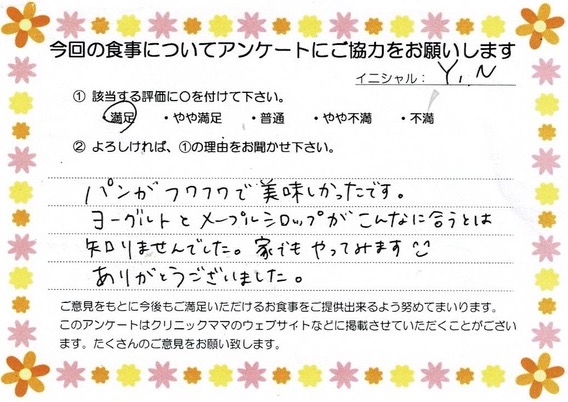 今回の食事についてアンケートにご協力をお願いします
イニシャル： Y, N
① 該当する評価に〇を付けて下さい。
・満足 ・やや満足 ・普通 ・やや不満 ・不満
② よろしければ、①の理由をお聞かせ下さい。
パンがフワフワで美味しかったです。
ヨーグルトとメープルシロップがこんなに合うとは
知りませんでした。家でもやってみます
ありがとうございました。
ご意見をもとに今後もご満足いただけるお食事をご提供出来るよう努めてまいります。
このアンケートはクリニックママのウェブサイトなどに掲載させていただくことがござい
ます。たくさんのご意見をお願い致します。